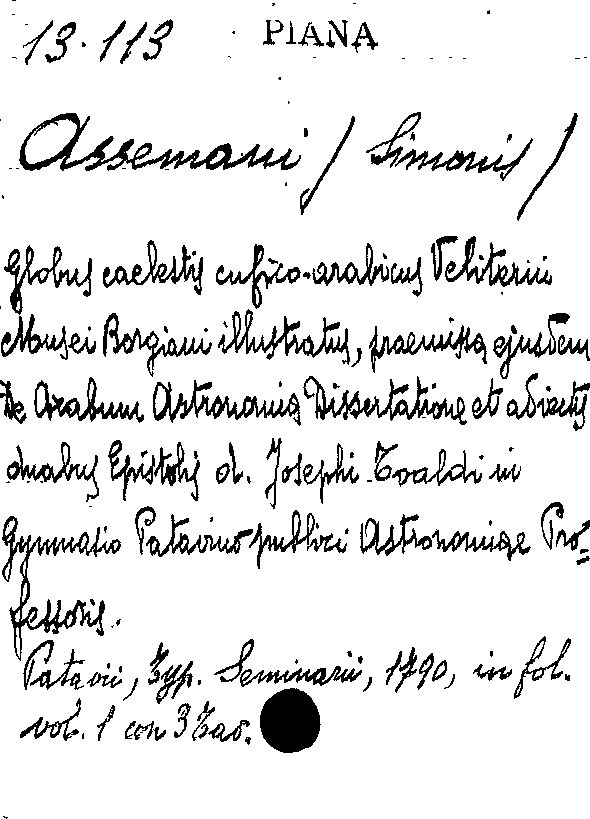 13.113 PIANA
Assemani / Simonis /
Globus caelestis cufico-arabicus Veliterni
Musei Borgiani illustratus, praemissa ejusdem
De Arabum Astronomia Dissertatione et adiectis
duabus Epistolis d. Josephi Toaldi in
Gymnasio Patavino publici Astronomiae Pro=
fessoris.
Patavii, Typ. Seminarii, 1790, in fol.
vol. 1 con 3 Tav.